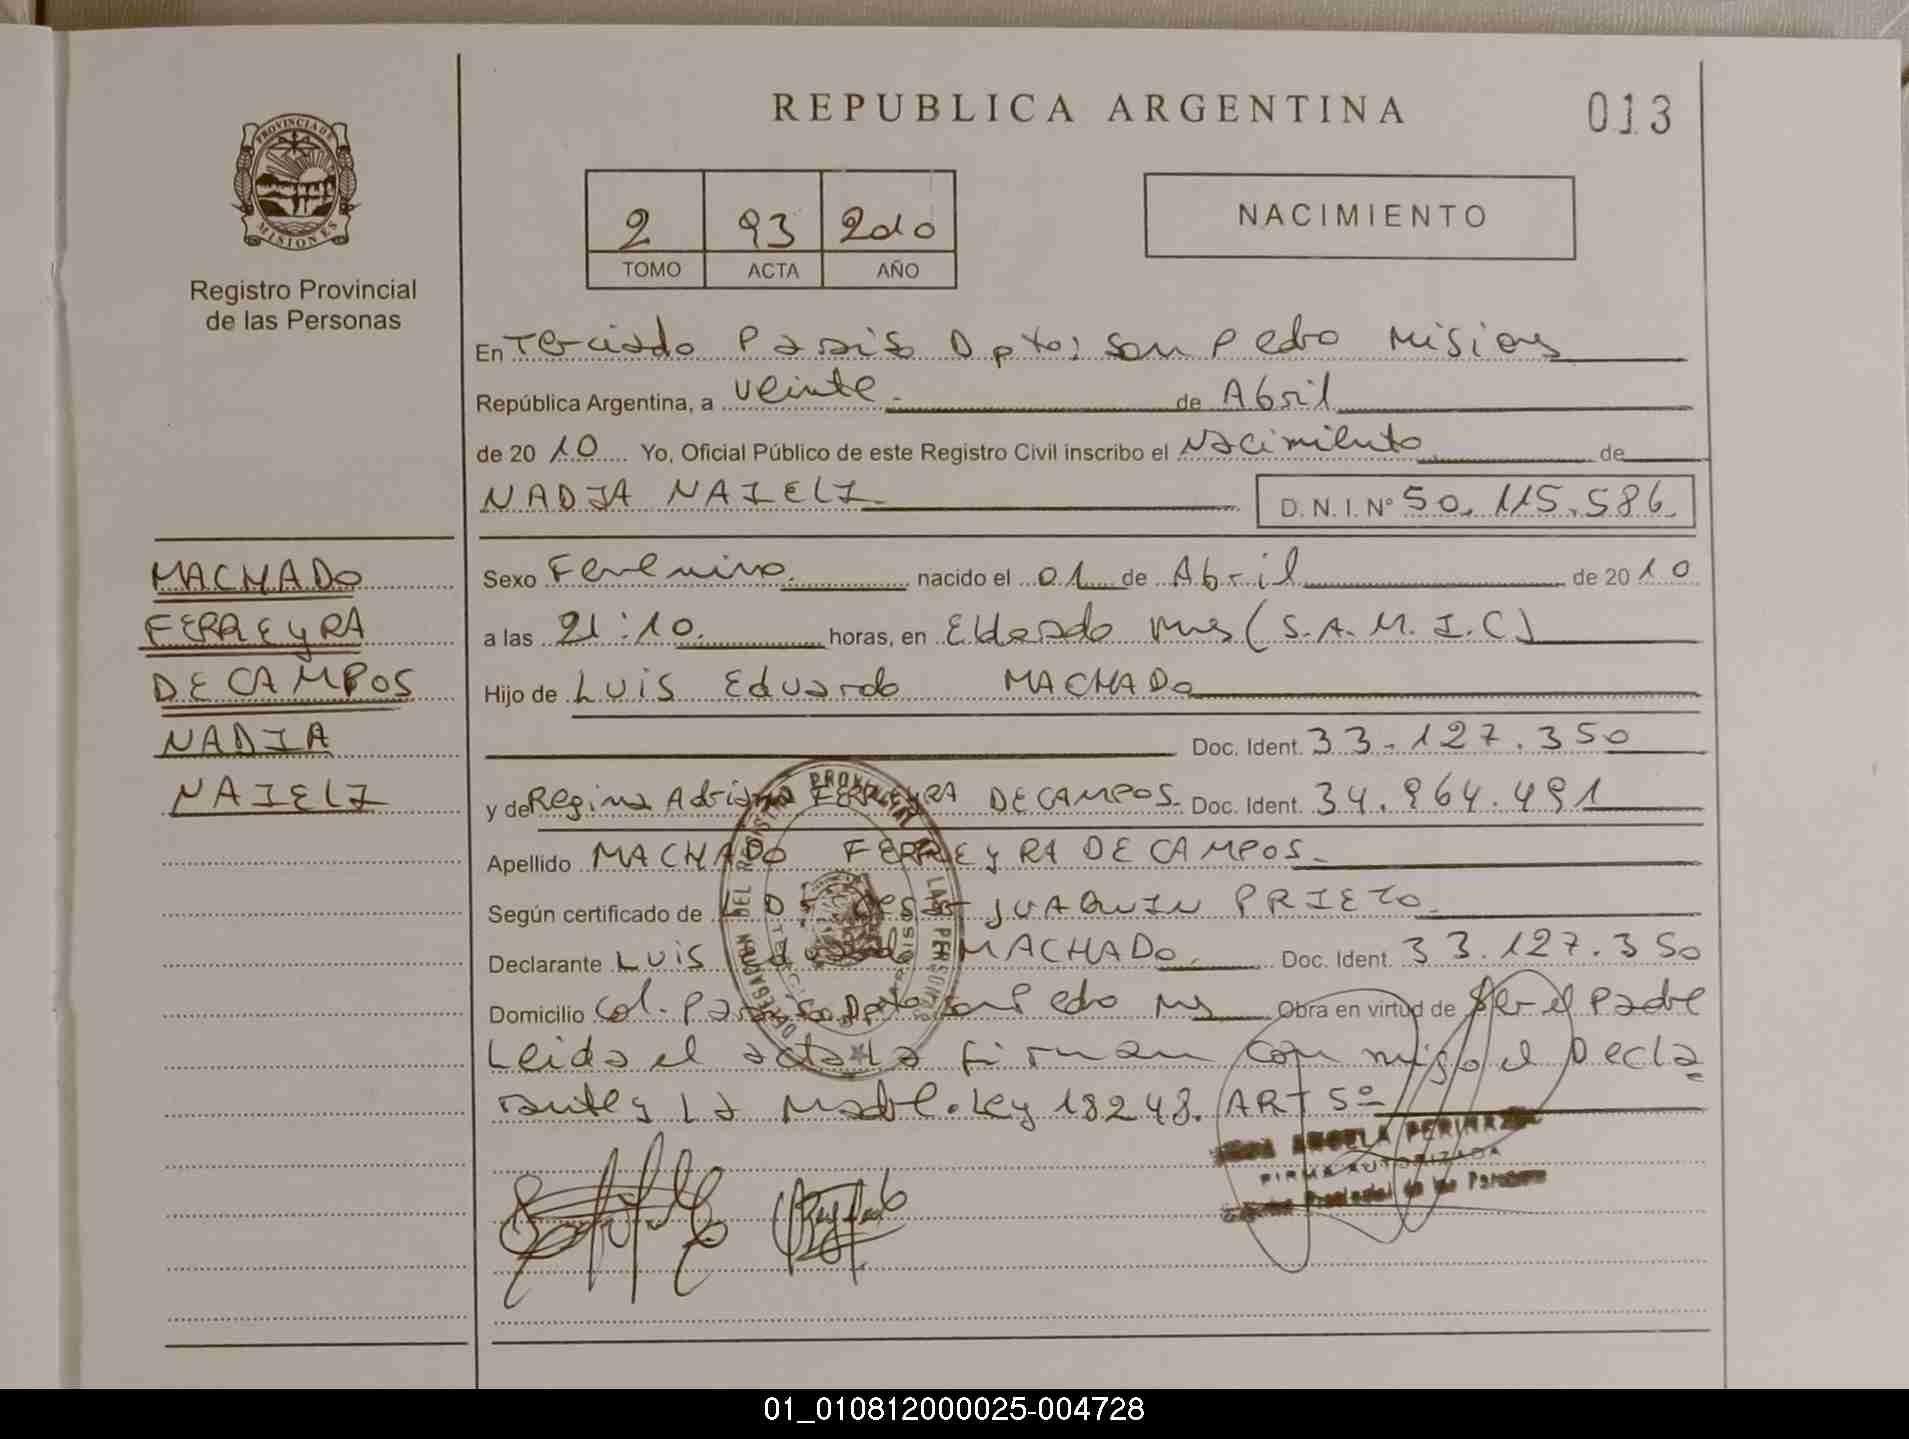 REPUBLICA ARGENTINA
013
PROVINCIA DE
MISIONES
Registro Provincial
de las Personas
2 93 2010
TOMO ACTA AÑO
NACIMIENTO
En Terciado Paraiso Dpto; San Pedro Misiones
República Argentina, a veinte. de Abril
de 20 10 Yo, Oficial Público de este Registro Civil inscribo el Nacimiento de
NADIA NAIELI
D.N.I. Nº 50.115.586.
MACHADO
FERREYRA
DE CAMPOS
NADIA
NAIELI
Sexo Femenino. nacido el 01 de Abril de 20 10
a las 21:10. horas, en Eldorado Mnes (S.A.M.I.C)
Hijo de Luis Eduardo MACHADO
Doc. Ident. 33.127.350
y de Regina Adriana FERREYRA DE CAMPOS. Doc. Ident. 34.964.491
Apellido MACHADO FERREYRA DE CAMPOS.
Según certificado de JUAQUIN PRIETO.
Declarante Luis Eduardo MACHADO. Doc. Ident. 33.127.350
Domicilio Col. Paraiso Dpto San Pedro Ms Obra en virtud de Ser el Padre
Leida el acta La firman con migo el Decla
rante y La Madre. Ley 18248. ART 5º
ANGELA
FIRMA AUTORIZADA
Provincial de las Personas
DELEGACION DEL REGISTRO PROVINCIAL DE LAS PERSONAS
01_010812000025-004728